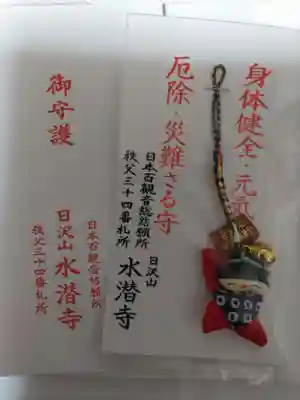 身体健全・元気
厄除・災難さる守
日本百観音総結願所
秩父三十四番札所
日沢山
水潜寺
御守護
日本百観音結願所
秩父三十四番札所
日沢山 水潜寺